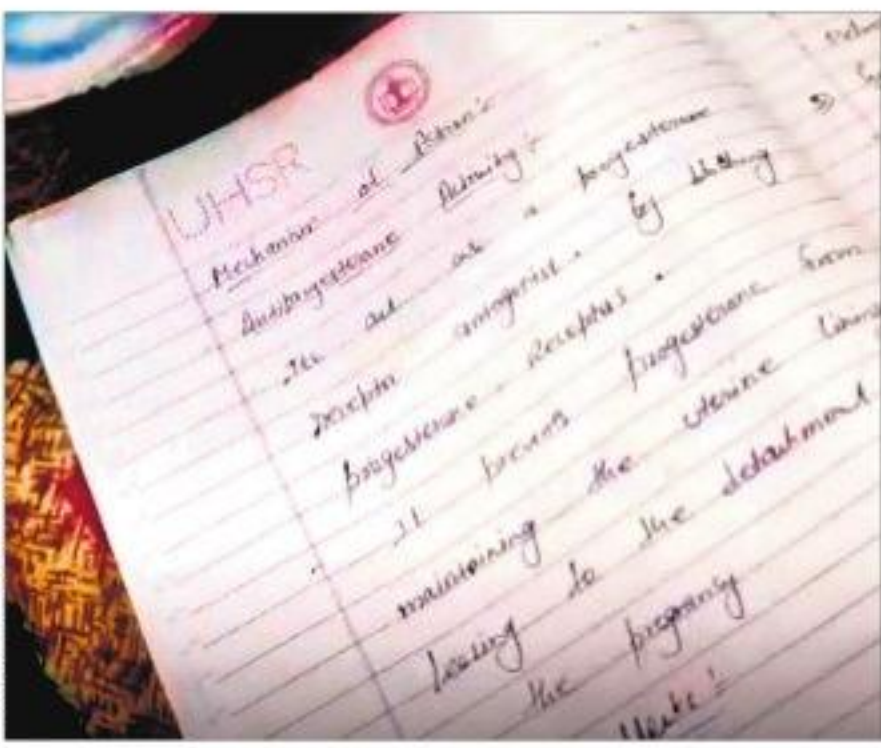 UHSR
Mechanism of Action:-
Antiprogesterone Activity:-
Its act as a progesterone
receptor antagonist. by blocking
progesterone Receptors.
It prevents progesterone from
maintaining the uterine lining
leading to the detachment
the pregnancy